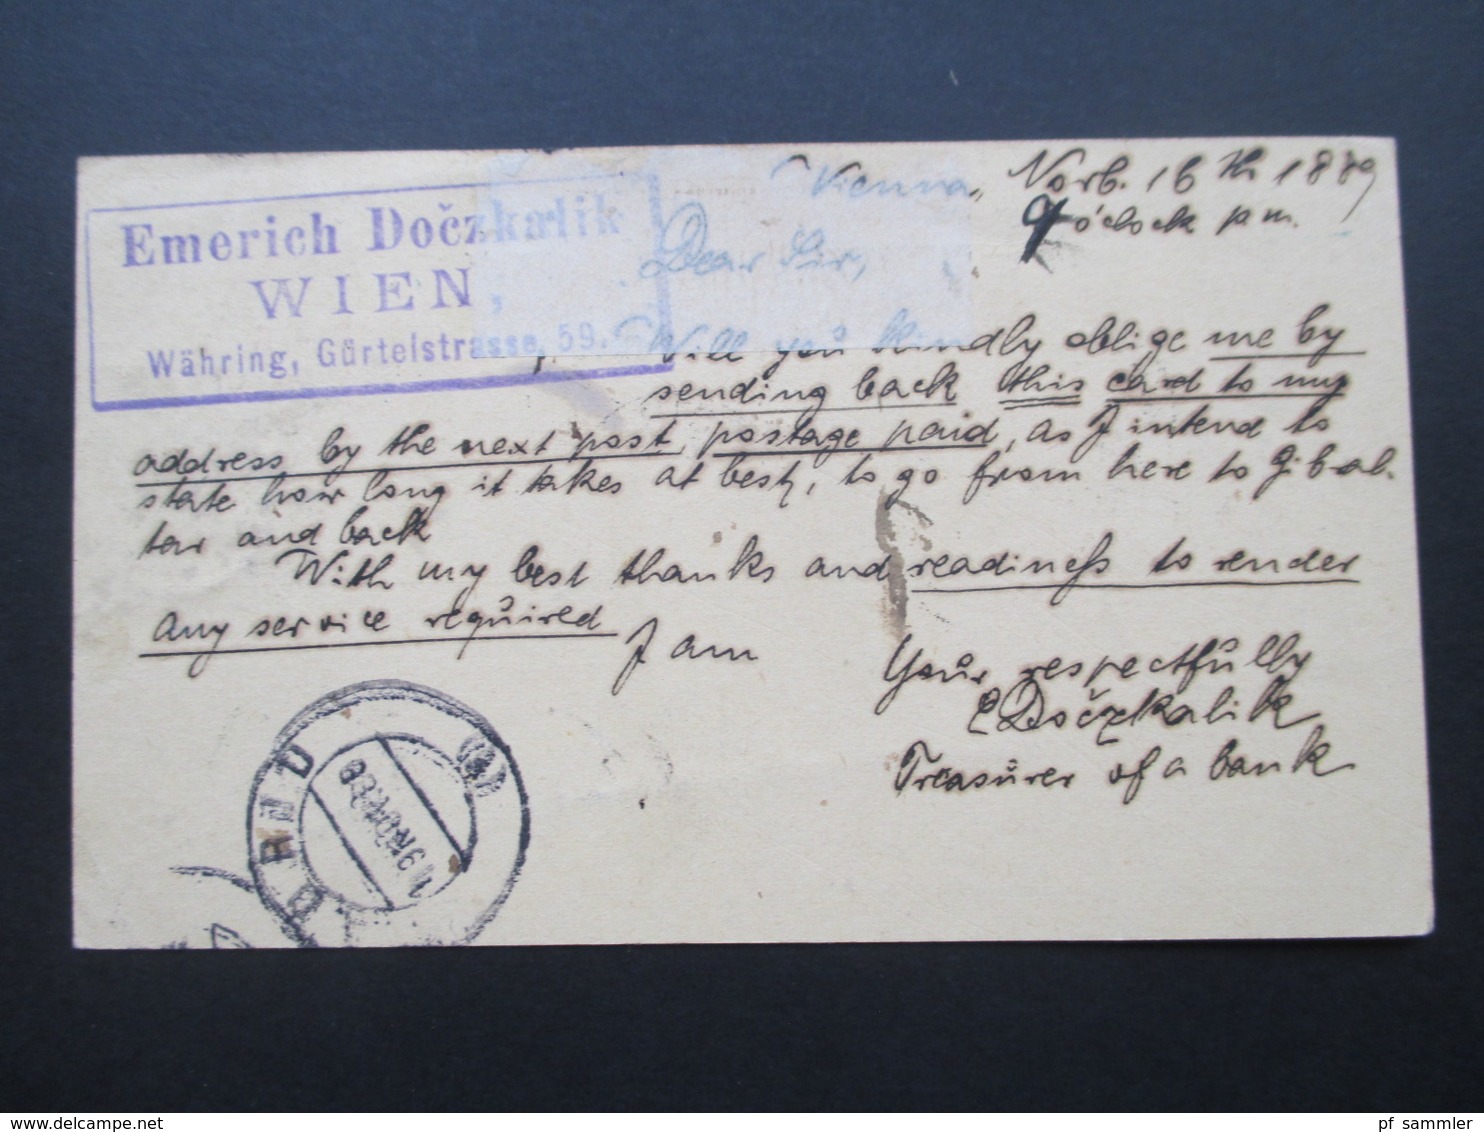 Emerich Dočzkalik
WIEN,
Währing, Gürtelstrasse 59.
Vienna, Novb. 16th 1889
9 o'clock p m.
Dear Sir,
Will you kindly oblige me by
sending back this card to my
address by the next post, postage paid, as I intend to
state how long it takes at best, to go from here to Gibral-
tar and back
With my best thanks and readiness to render
any service required
I am
Your respectfully
E Dočzkalik
Treasurer of a bank
pf sammler